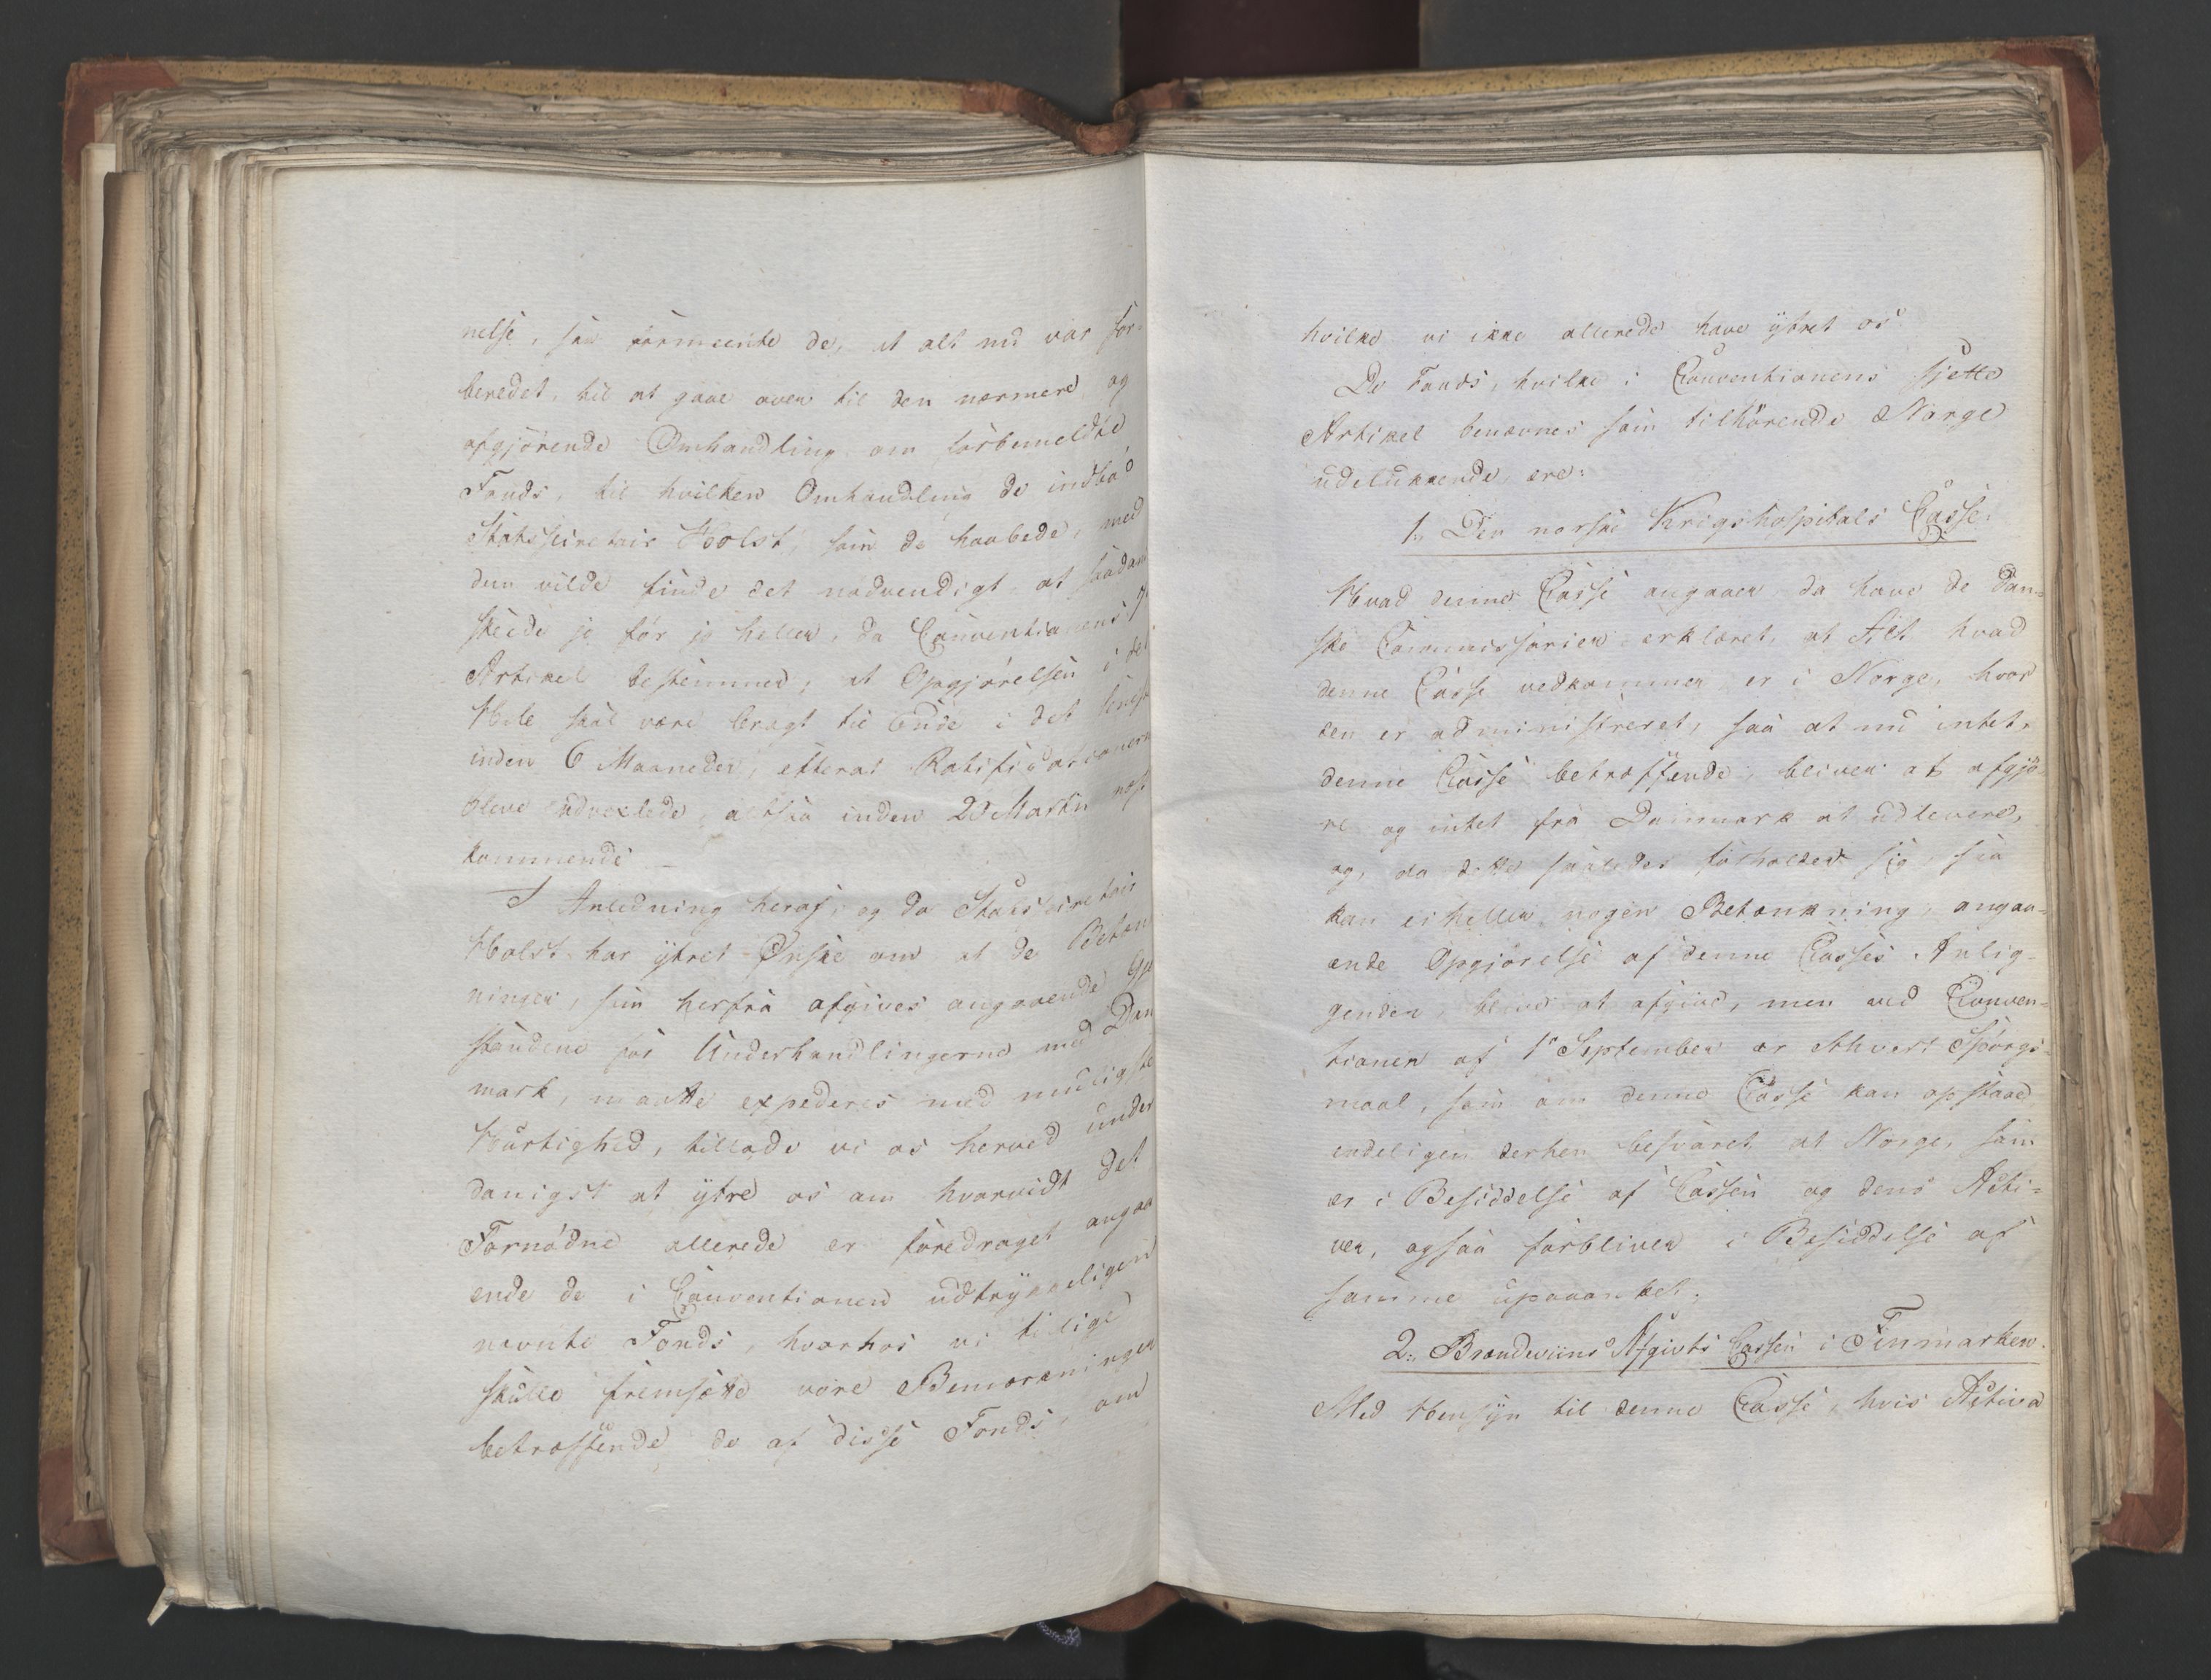 nelse, saa formeente de, at alt nu var for-
beredet, til at gaae over til den nærmere og
afgjørende Omhandling om forbemeldte
Fonds, til hvilken Omhandling de indbød
Statssecretair Holst, som de haabede, med
dem vilde finde det nødvendigt at saadan
skeede jo før jo heller, da Conventionens 7
Artikel bestemmer, at Opgjørelsen i det
Hele skal være bragt til Ende i det seneste
inden 6 Maaneder, efterat Ratificationerne
bleve udvexlede, altsaa inden Martii næst
kommende
I Anledning heraf, og da Statssecretair
Holst har ytret Ønske om at de Betænk
ninger, som herfra afgives angaaende Gjen
standene for Underhandlingerne med Dan
mark, maatte expederes med mueligste
Hurtighed, tillade vi os herved under
danigst at ytre os om hvorvidt det
Fornødne allerede er foredraget angaa
ende de i Conventionen udtrykkeligen
nævnte Fonds, hvorhos vi tillige
skulle fremsætte vore Bemærkninger
betræffende de af disse Fonds, om
hvilke vi ikke allerede have ytret os
De Fonds, hvilke i Conventionens sjette
Artikel benævnes som tilhørende Norge
udelukkende, ere:
1., Den norske Krigshospitals Casse.
Hvad denne Casse angaaer da have de Dan-
ske Commissarier erklæret, at Alt hvad
denne Casse vedkommer er i Norge, hvor
den er administreret, saa at nu intet,
denne Casse betræffende, bliver at afgjø-
re og intet fra Danmark at udlevere,
og, da dette saaledes forholder sig, saa
kan ei heller nogen Betænkning, angaa-
ende Opgjørelse af denne Casses Anlig-
gender, blive at afgive, men ved Conven-
tionen af 1e September er ethvert Spørgs-
maal, som om denne Casse kan opstaae
endeligen derhen besvaret at Norge, som
er i Besiddelse af Cassen og dens Acti-
ver, ogsaa forbliver i Besiddelse af
samme upaaanket.
2., Brændeviins Afgivts Cassen i Finmarken.
Med Hensyn til denne Casse, hvis Activa